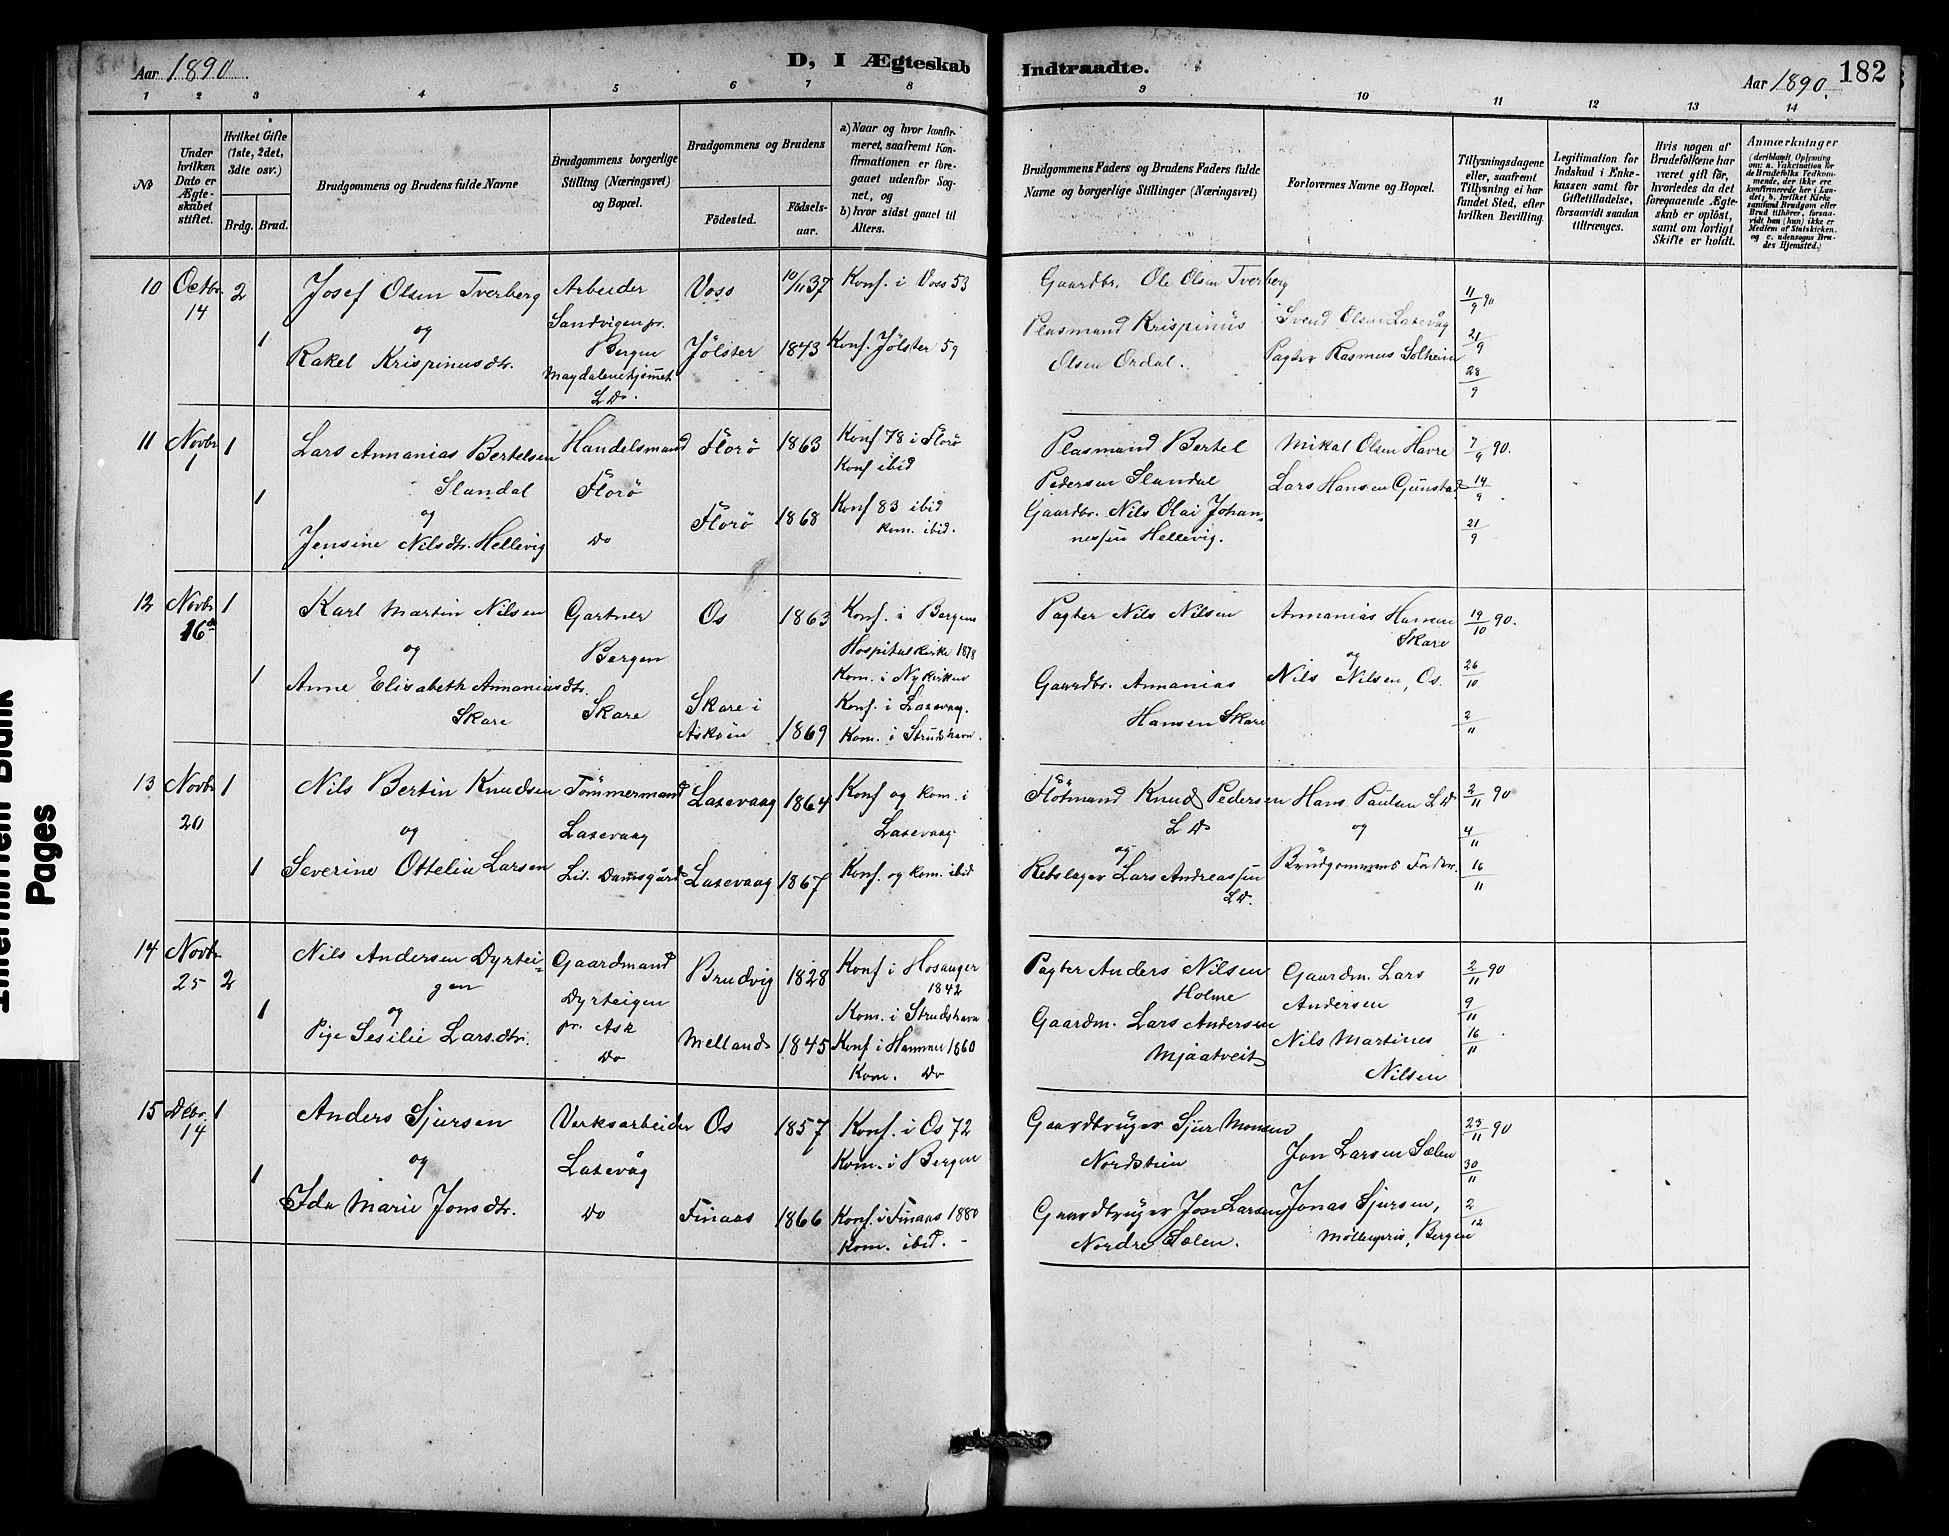 Aar 1890.
D, I Ægteskab
Indtraadte.
Aar 1890.
182
1 2 3 4 5 6 7 8
9 10 11 12 13 14
No
Under hvilken Dato er Ægteskabet stiftet.
Hvilket Gifte (1ste, 2det, 3dte osv.)
Brdg. Brud.
Brudgommens og Brudens fulde Navne
Brudgommens borgerlige Stilling (Næringsvei) og Bopæl.
Brudgommens og Brudens
Födested.
Födsels-aar.
a) Naar og hvor konfirmeret, saafremt Konfirmationen er foregaaet udenfor Sognet, og
b) hvor sidst gaaet til Alters.
Brudgommens Faders og Brudens Faders fulde Navne og borgerlige Stillinger (Næringsvei)
Forlovernes Navne og Bopæl.
Tillysningsdagene eller, saafremt Tillysning ei har fundet Sted, efter hvilken Bevilling.
Legitimation for Indskud i Enkekassen samt for Giftetilladelse, forsaavidt saadan tiltrænges.
Hvis nogen af Brudefolkene har været gift før, hvorledes da det foregaaende Ægteskab er opløst, samt om lovligt Skifte er holdt.
Anmerkninger
10 Octbr. 14 2 1
Josef Olsen Tverberg
og
Rakel Krispinusdtr.
Arbeider
Sandvigen pr.
Bergen
Magdalenehjemmet
LD.
Voss 10/11 37
Jølster 1843
Konf. i Voss 53
Konf. Jølster 59
Gaardbr. Ole Olsen Tverberg
Plasmand Krispinus
Olsen Ordal.
Svend Olsen Laxevåg
Pagter Rasmus Solheim
11/9 90
21/9
28/9
11 Novbr 1 1 1
Lars Annanias Bertelsen
Standal
og
Jensine Nilsdtr. Hellevig
Handelsmand
Florø
Do
Florø 1863
Florø 1868
Konf 78 i Florø
Konf ibid
Konf 83 ibid
Kom. ibid.
Plasmand Bertel
Pedersen Standal
Gaardbr. Nils Olai Johan-
nessen Hellevig.
Mikal Olsen Havre
Lars Hansen Gunstad
7/9 90.
14/9
21/9
12 Novbr 16de 1 1
Karl Martin Nilsen
og
Anne Elisabeth Annaniasdtr.
Skare
Gartner
Bergen
Skare
Os 1863
Skare i
Askøen 1869
Konf. i Bergens
Hospitalskirke 1878
Kom. i Nykirken
Konf. i Laxevaag.
Kom. i Strudshavn.
Pagter Nils Nilsen
Gaardbr. Annanias
Hansen Skare
Annanias Hansen
Skare
og
Nils Nilsen, Os.
19/10 90.
26/10
2/11
13 Novbr 20 1 1
Nils Bertin Knudsen
og
Severine Ottelia Larsen
Tömmermand
Laxevaag
Lil. Damsgård
Laxevaag 1864
Laxevaag 1867
Konf og kom. i
Laxevaag.
Konf. og kom. ibid
Flötmand Knud Pedersen
LD
og
Rebslager Lars Andreassen
LD.
Hans Paulsen LD
og
Brudgommens Fader.
2/11 90
4/11
16/11
14 Novbr 25 2 1
Nils Andersen Dyrtei-
gen
og
Pige Sesilie Larsdtr.
Gaardmand
Dyrteigen
pr. Ask
Do
Brudvig 1828
Melland 1845
Konf. i Hosanger
1842
Kom. i Strudshavn
Konf. i Hammer 1860
Kom. Do
Pagter Anders Nilsen
Holme
Gaardm. Lars Andersen
Mjaatveit
Gaardm. Lars
Andersen
Nils Martines
Nilsen
2/11 90
9/11
16/11
15 Decbr. 14 1 1
Anders Sjursen
og
Ida Marie Jonsdtr.
Verksarbeider
Laxevåg
Do
Os 1857
Finaas 1866
Konf. i Os 72
Kom. i Bergen
Konf. i Finaas 1880
Kom. ibid.
Gaardbruger Sjur Monsen
Nordstrien
Gaardbruger Jon Larsen
Nordre Sælen.
Jon Larsen Sælen
Jonas Sjursen,
Möllenpris, Bergen
23/11 90
30/11
2/12
Intermittent Blank
Pages